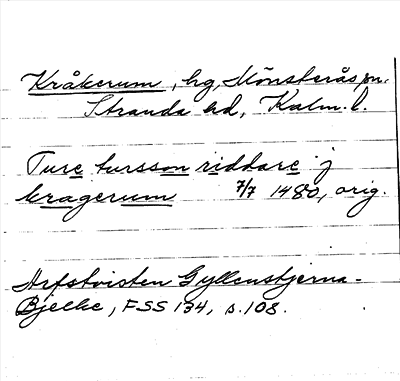 Kråkerum, hg, Mönsterås sn.
Stranda hd, Kalm. l.
Ture tursson riddare j
kragerum 7/7 1480, orig.
Arfstvisten Gyllenstjerna-
Bjelke, FSS 134, s. 108.